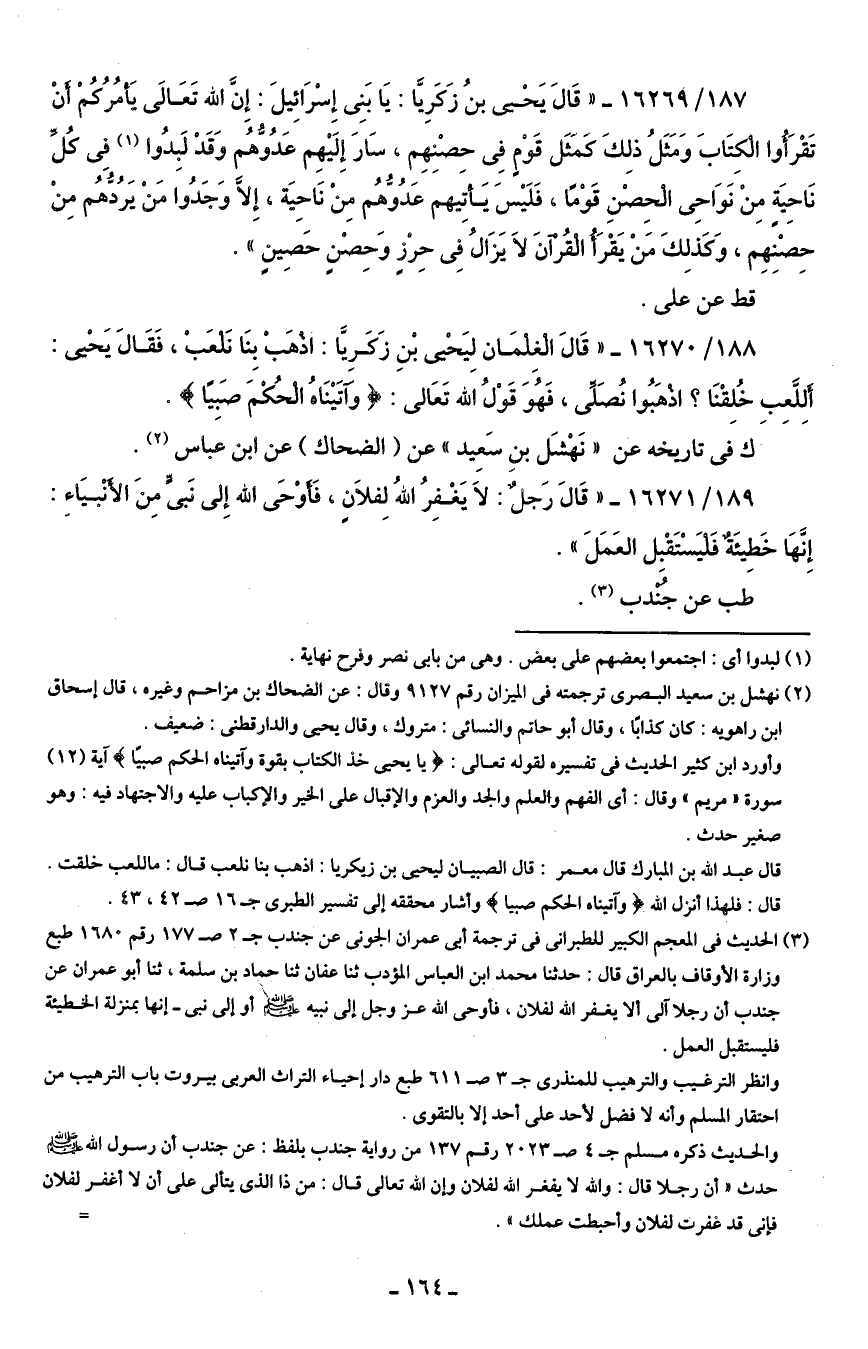 ١٨٧/ ١٦٢٦٩ ـ « قَالَ يَحْيى بنُ زَكَرِيَّا : يَا بَنِى إِسْرَائِيلَ : إِنَّ الله تَعَالَى يَأمُرُكُمْ أَنْ
تَقْرَأُوا الْكِتَابَ وَمَثَلُ ذلِكَ كَمَثَل قَوْمٍ فِى حِصنِهِم ، سَارَ إِلَيْهِم عَدُوُّهُم وَقَدْ لَبِدُوا (١) فِى كُلِّ
نَاحِيَةٍ مِنْ نَوَاحِى الْحِصْنِ قَوْمًا ، فَلَيْسَ يَأتِيهِم عَدُوُّهُم مِنْ نَاحِيَة ، إِلاَّ وَجَدُوا مَنْ يَرُدُّهُم مِنْ
حِصْنِهِم ، وَكَذلِكَ مَنْ يَقْرَأُ الْقُرْآنَ لاَ يَزَالُ فِى حِرْزٍ وَحِصْنٍ حَصِينٍ » .
قط عن على .
١٨٨/ ١٦٢٧٠ ـ « قَالَ الْغِلْمَان لِيَحْيى بْنِ زَكَرِيَّا : اذْهَبْ بِنَا نَلْعَبْ ، فَقَالَ يَحْيى :
أَلِلَّعِبِ خُلِقْنَا ؟ اذْهَبُوا نُصَلِّى ، فَهُوَ قَوْلُ الله تَعَالى : ﴿ وَآتَيْنَاهُ الْحُكْمَ صَبِيًا ﴾ .
ك فى تاريخه عن « نَهْشَل بن سَعِيد » عن ( الضحاك ) عن ابن عباس (٢) .
١٨٩/ ١٦٢٧١ ـ « قَالَ رَجلٌ : لاَ يَغْفِرُ اللهُ لِفلاَنٍ ، فَأَوْحَى الله إِلى نَبىٍّ مِنَ الأَنْبِيَاءِ :
إِنَّهَا خَطِيئَةٌ فَلْيَسْتَقْبِل العَمَلَ » .
طب عن جُنْدب (٣) .
(١) لبدوا أى : اجتمعوا بعضهم على بعض . وهى من بابى نصر وفرح نهاية .
(٢) نهشل بن سعيد البصرى ترجمته فى الميزان رقم ٩١٢٧ وقال : عن الضحاك بن مزاحم وغيره ، قال إسحاق
ابن راهويه : كان كذابًا ، وقال أبو حاتم والنسائى : متروك ، وقال يحيى والدارقطنى : ضعيف .
وأورد ابن كثير الحديث فى تفسيره لقوله تعالى : ﴿ يا يحيى خذ الكتاب بقوة وآتيناه الحكم صبيًا ﴾ آية (١٢)
سورة « مريم » وقال : أى الفهم والعلم والجد والعزم والإقبال على الخير والإكباب عليه والاجتهاد فيه : وهو
صغير حدث .
قال عبد الله بن المبارك قال معمر : قال الصبيان ليحيى بن زيكريا : اذهب بنا نلعب قال : ماللعب خلقت .
قال : فلهذا أنزل الله ﴿ وآتيناه الحكم صبيا ﴾ وأشار محققه إلى تفسير الطبرى جـ ١٦ صـ ٤٢ ، ٤٣ .
(٣) الحديث فى المعجم الكبير للطبرانى فى ترجمة أبى عمران الجونى عن جندب جـ ٢ صـ ١٧٧ رقم ١٦٨٠ طبع
وزارة الأوقاف بالعراق قال : حدثنا محمد ابن العباس المؤدب ثنا عفان ثنا حماد بن سلمة ، ثنا أبو عمران عن
جندب أن رجلا آلى ألا يغفر الله لفلان ، فأوحى الله عز وجل إلى نبيه ﷺ أو إلى نبى ـ إنها بمنزلة الخطيئة
فليستقبل العمل .
وانظر الترغيب والترهيب للمنذرى جـ ٣ صـ ٦١١ طبع دار إحياء التراث العربى بيروت باب الترهيب من
احتقار المسلم وأنه لا فضل لأحد على أحد إلا بالتقوى .
والحديث ذكره مسلم جـ ٤ صـ ٢٠٢٣ رقم ١٣٧ من رواية جندب بلفظ : عن جندب أن رسول الله ﷺ
حدث « أن رجلا قال : والله لا يفغر الله لفلان وإن الله تعالى قال : من ذا الذى يتألى على أن لا أغفر لفلان
فإنى قد غفرت لفلان وأحبطت عملك » .
=
ـ ١٦٤ ـ